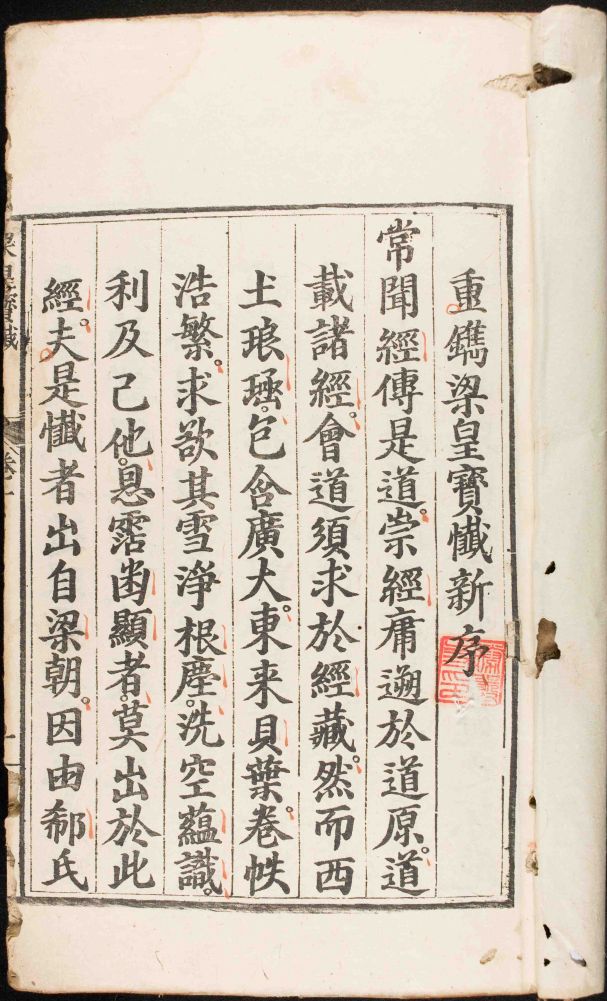 重鐫梁皇寶懺新序
常聞經傳是道。崇經庸遡於道原。道
載諸經。會道須求於經藏。然而西
土琅凾。包含廣大。東来貝葉。卷帙
浩繁。求欲其雪淨根塵。洗空蘊識。
利及己他。恩霑幽顯者。莫出於此
經。夫是懺者出自梁朝。因由郗氏
梁皇寶懺
卷一